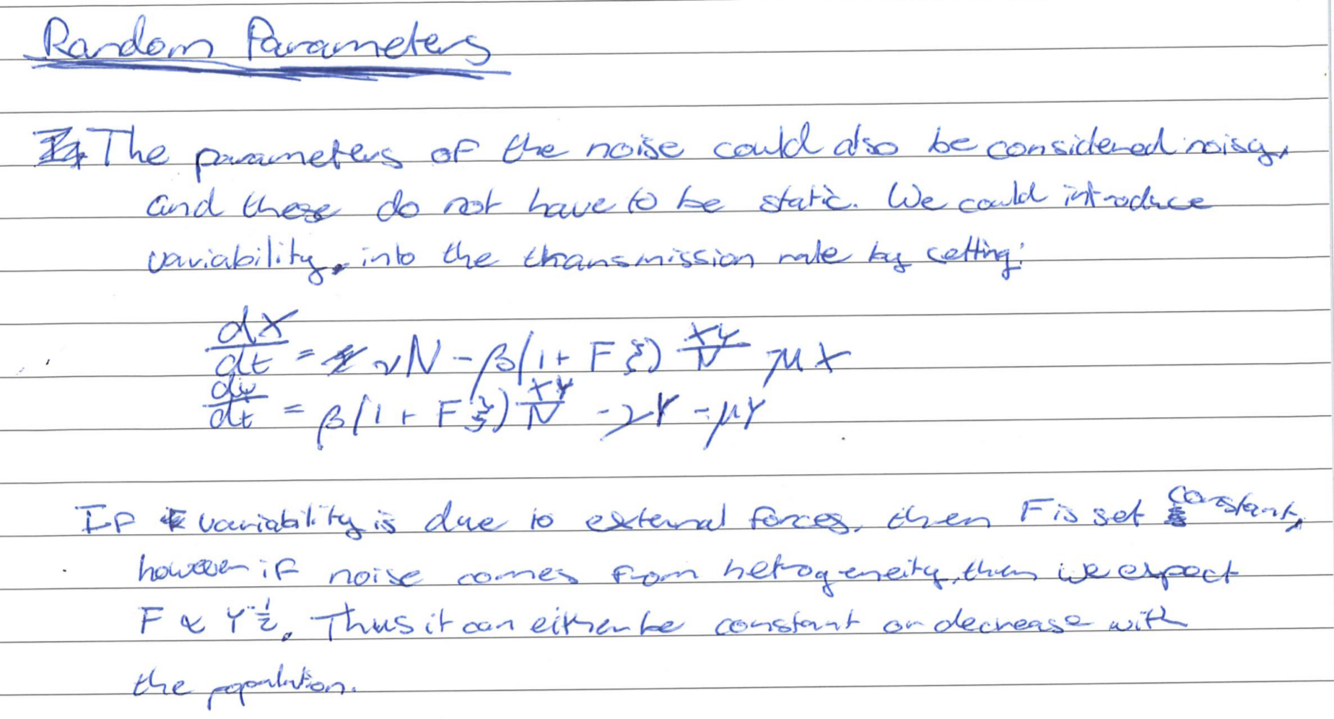 Random Parameters
The parameters of the noise could also be considered noisy,
and these do not have to be static. We could introduce
variability, into the transmission rate by setting:
dX/dt = νN - β(1 + Fξ) XY/N - μX
dY/dt = β(1 + Fξ) XY/N - γY - μY
If variability is due to external forces, then F is set constant,
however if noise comes from hetrogeneity, then we expect
F ∝ Y^-1/2. Thus it can either be constant or decrease with
the population.